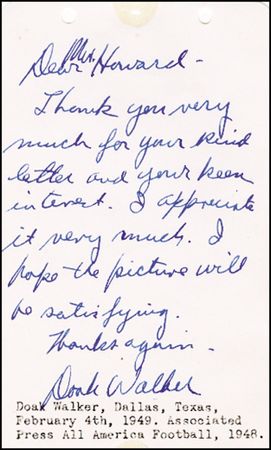 Dear Mr. Howard -
Thank you very
much for your kind
letter and your keen
interest. I appreciate
it very much. I
hope the picture will
be satisfying.
Thanks again.
Doak Walker
Doak Walker, Dallas, Texas,
February 4th, 1949. Associated
Press All America Football, 1948.